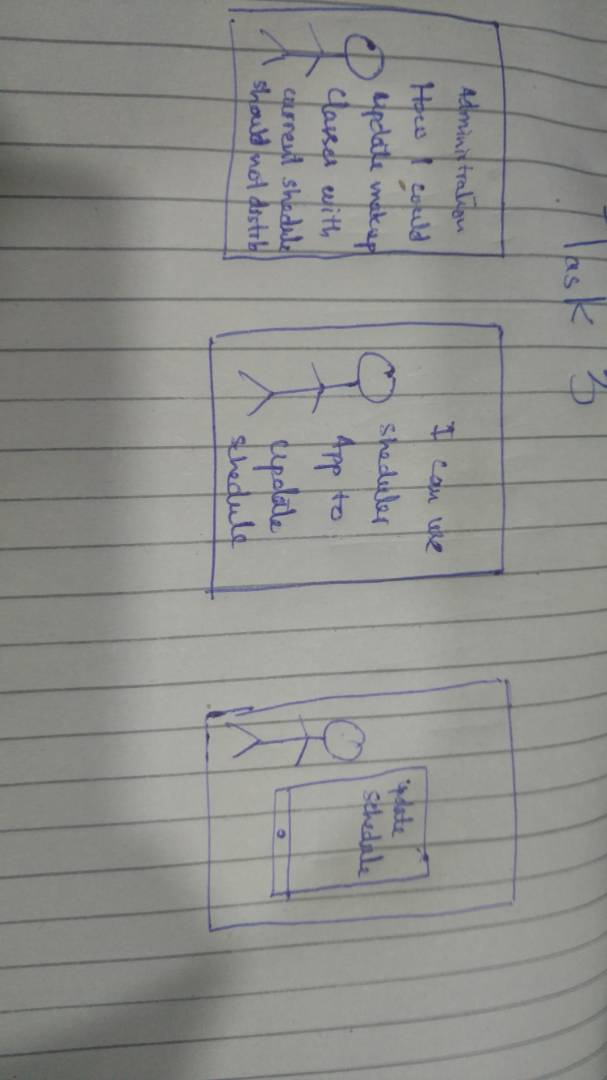 Task 3
Administration
How I could
update makup
classes with
current shedule
should not distrb
I can use
sheduler
App to
update
schedule
update
schedule